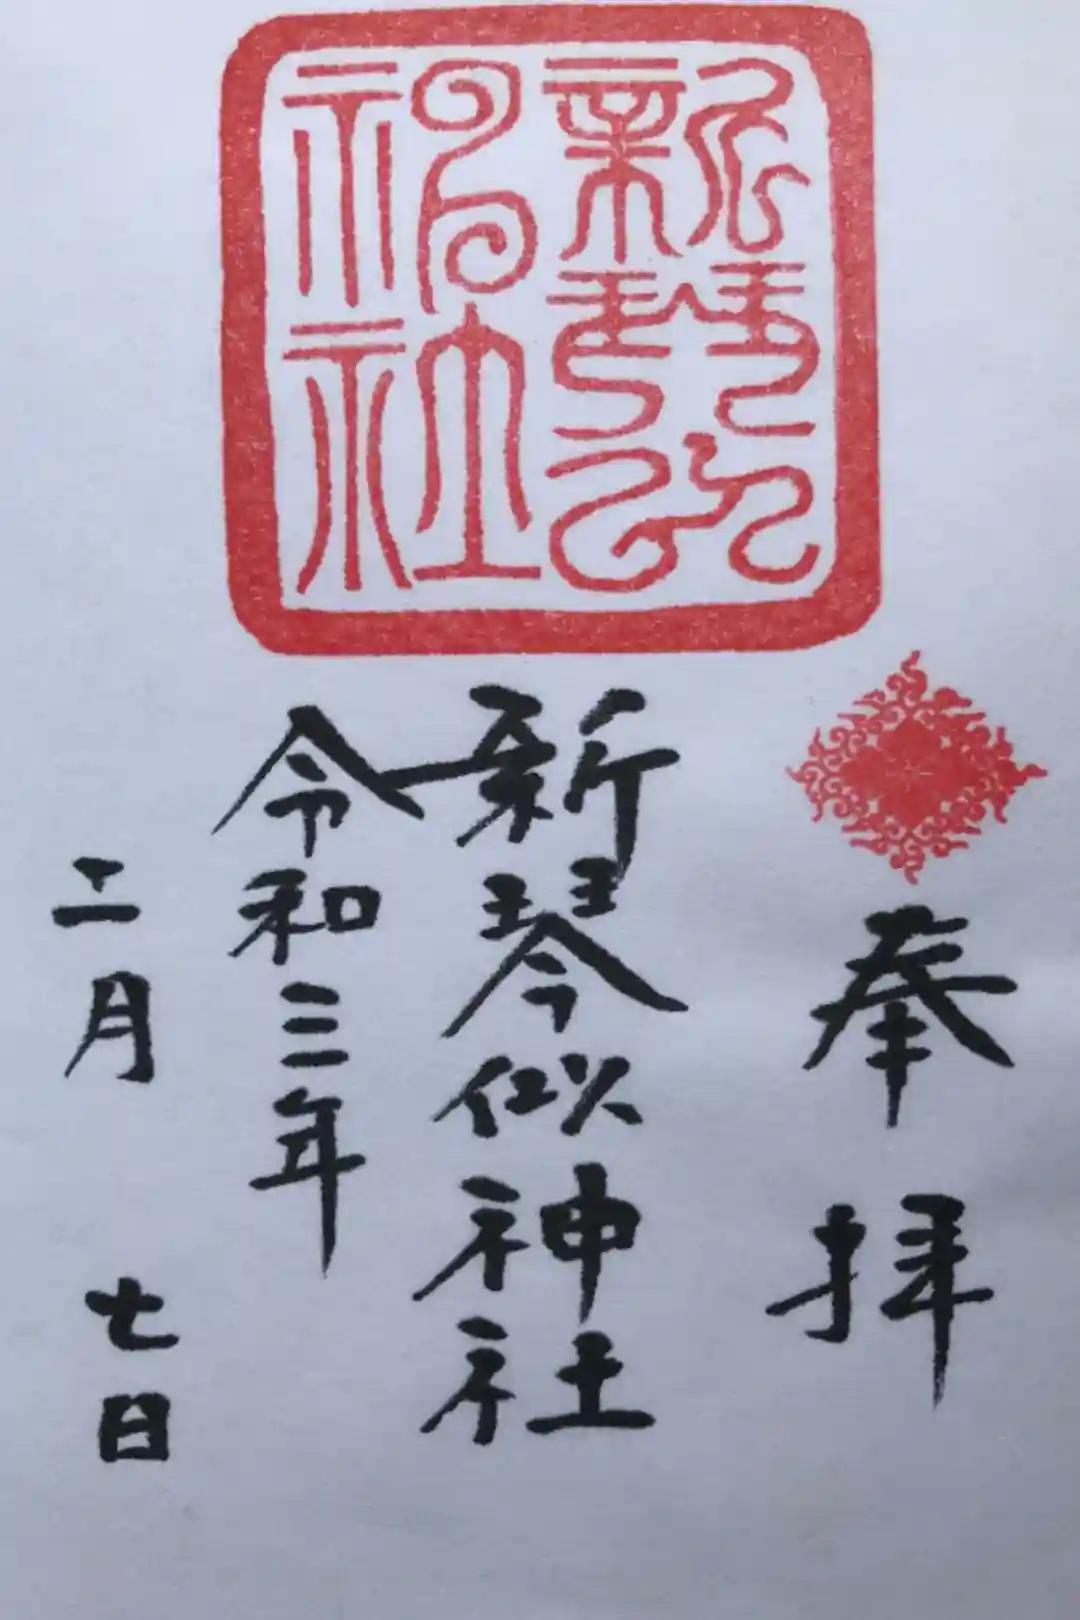 新琴似
神社
奉拝
新琴似神社
令和三年
二月七日